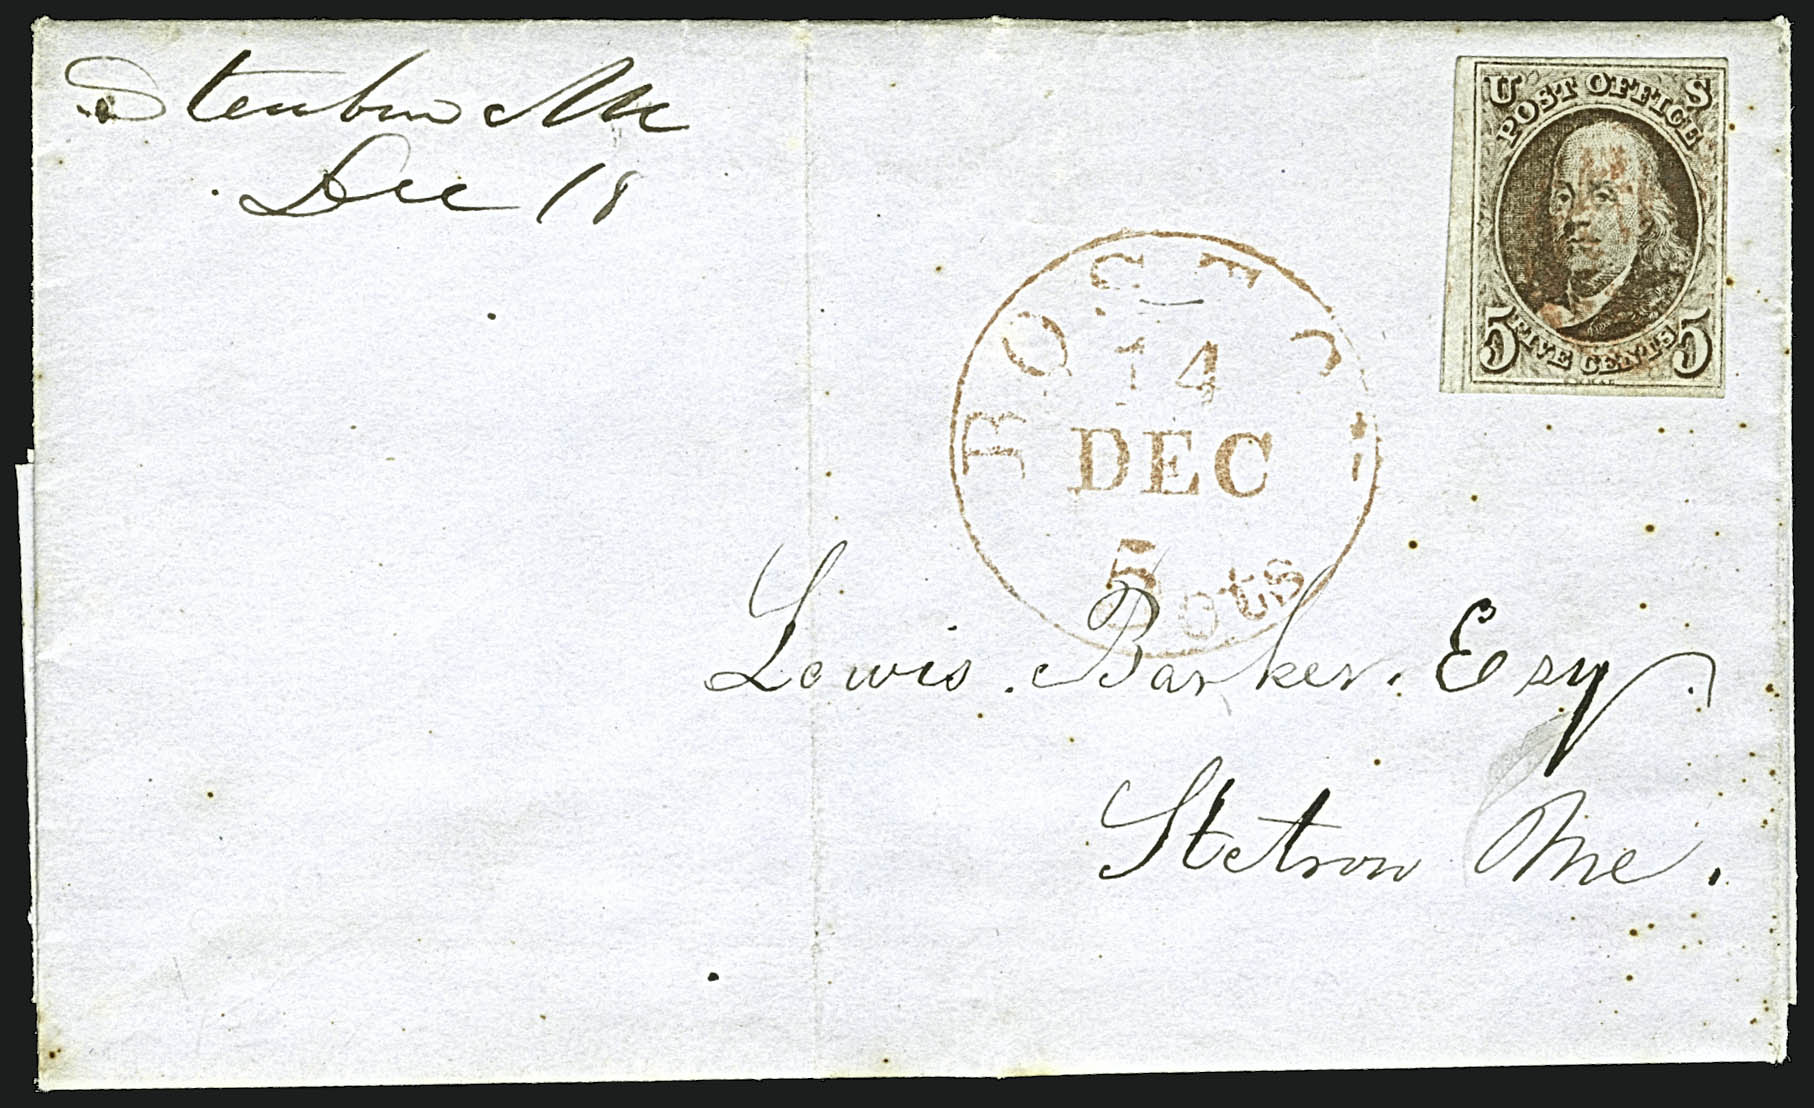 Steuben Me
Dec 18
U S
POST OFFICE
5 FIVE CENTS 5
BOSTON
14
DEC
5 cts
Lewis Barker. Esq.
Stetson Me.